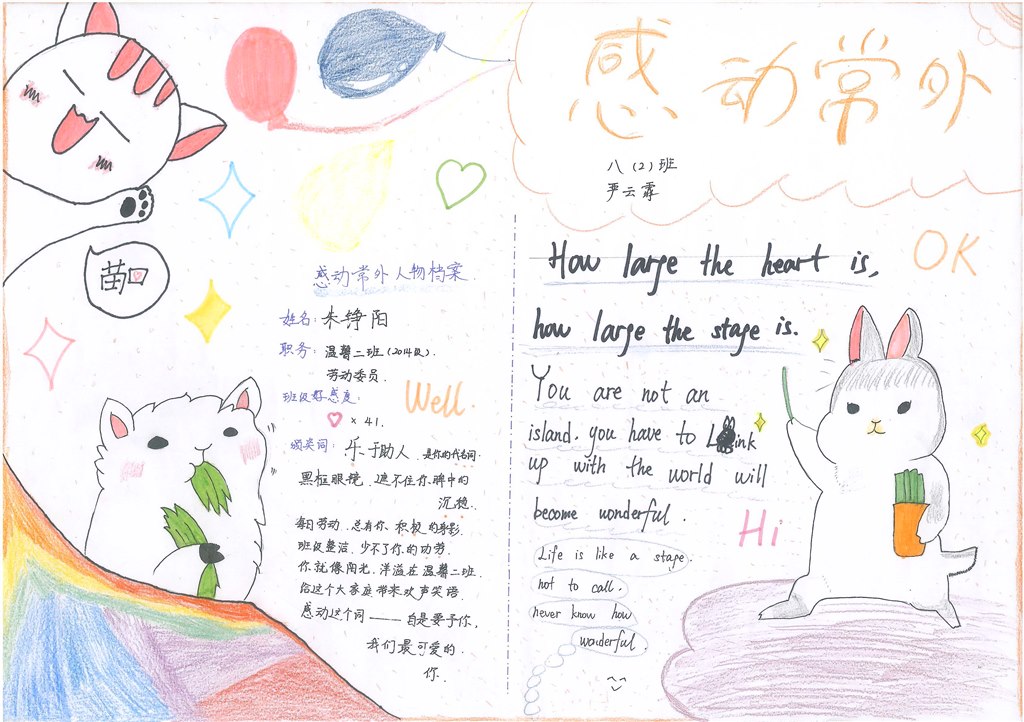 感动常外
八(2)班
严云霏
苗口
感动常外人物档案
姓名:朱铮阳
职务:温馨二班(2014级)
劳动委员.
班级好感度:
× 41.
颁奖词:乐于助人,是你的代名词.
黑框眼镜,遮不住你眸中的
沉稳.
每日劳动,总有你积极的身影.
班级整洁,少不了你的功劳.
你就像阳光,洋溢在温馨二班.
给这个大家庭带来欢声笑语.
感动这个词——自是要予你,
我们最可爱的.
你.
Well
How large the heart is,
how large the stage is.
You are not an
island. you have to Link
up with the world will
become wonderful.
Life is like a stage.
not to call.
never know how
wonderful.
OK
Hi